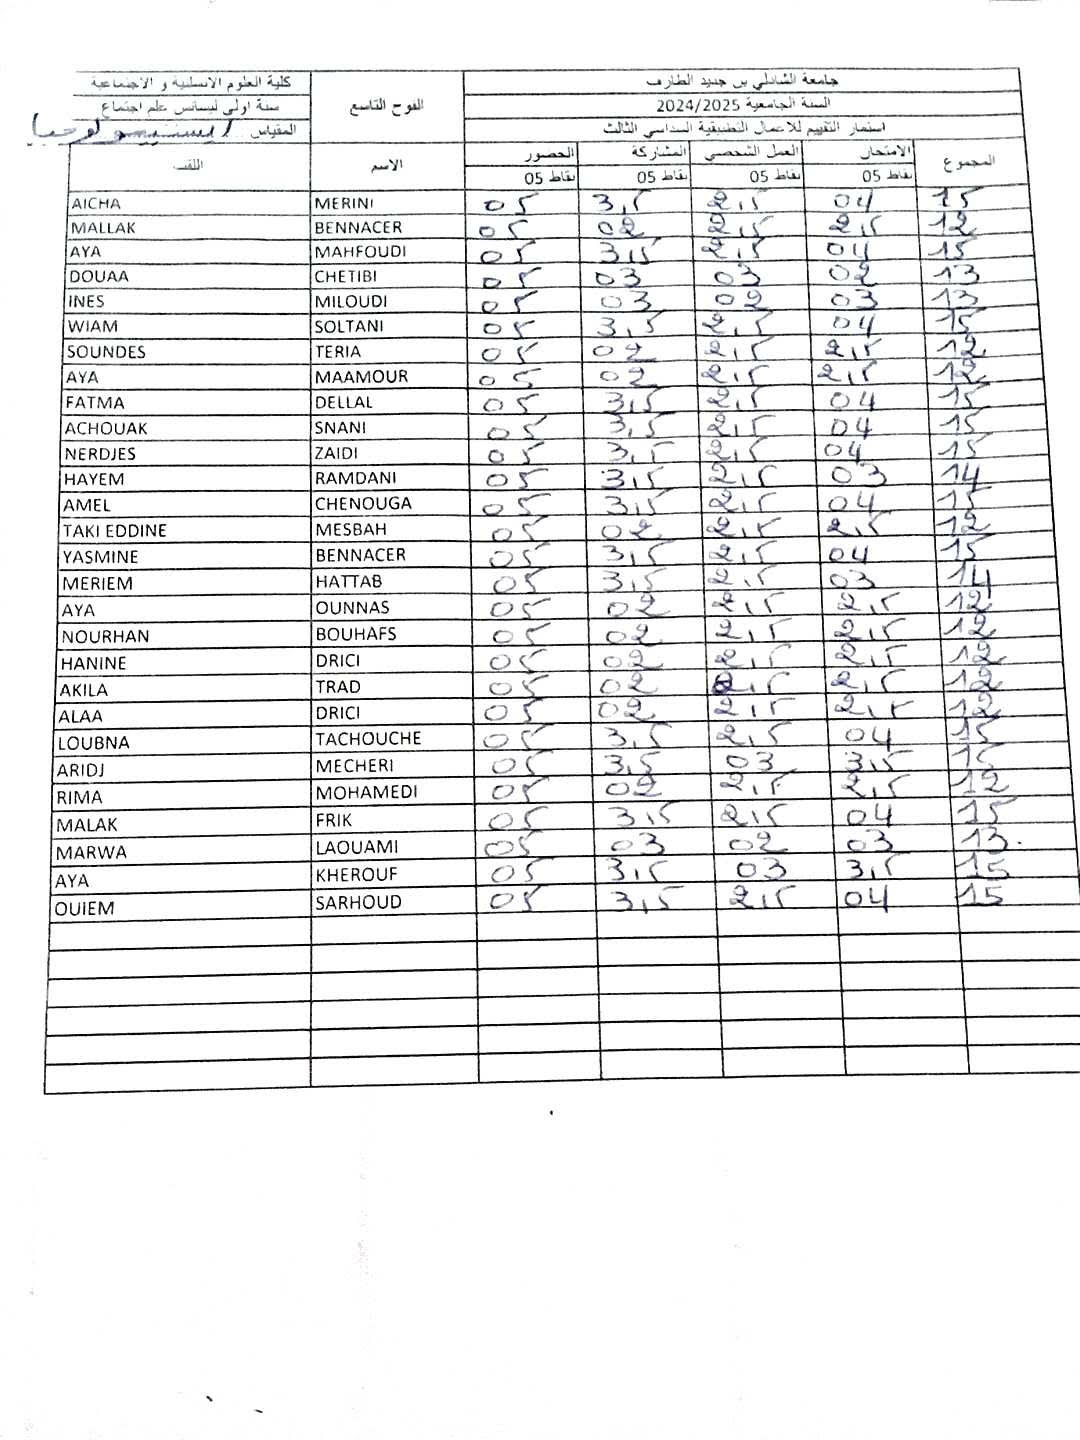 كلية العلوم الانسانية و الاجتماعية الفوج التاسع جامعة الشاذلي بن جديد الطارف
سنة اولى ليسانس علم اجتماع السنة الجامعية 2024/2025
المقياس ابستيمولوجيا استمار التقييم للاعمال التطبيقية السداسي الثالث
اللقب الاسم الحضور المشاركة العمل الشخصي الامتحان المجموع
نقاط 05 نقاط 05 نقاط 05 نقاط 05
AICHA MERINI 05 3,5 2,5 04 15
MALLAK BENNACER 05 02 2,5 2,5 12
AYA MAHFOUDI 05 3,5 2,5 04 15
DOUAA CHETIBI 05 03 03 02 13
INES MILOUDI 05 03 02 03 13
WIAM SOLTANI 05 3,5 2,5 04 15
SOUNDES TERIA 05 02 2,5 2,5 12
AYA MAAMOUR 05 02 2,5 2,5 12
FATMA DELLAL 05 3,5 2,5 04 15
ACHOUAK SNANI 05 3,5 2,5 04 15
NERDJES ZAIDI 05 3,5 2,5 04 15
HAYEM RAMDANI 05 3,5 2,5 03 14
AMEL CHENOUGA 05 3,5 2,5 04 15
TAKI EDDINE MESBAH 05 02 2,5 2,5 12
YASMINE BENNACER 05 3,5 2,5 04 15
MERIEM HATTAB 05 3,5 2,5 03 14
AYA OUNNAS 05 02 2,5 2,5 12
NOURHAN BOUHAFS 05 02 2,5 2,5 12
HANINE DRICI 05 02 2,5 2,5 12
AKILA TRAD 05 02 2,5 2,5 12
ALAA DRICI 05 02 2,5 2,5 12
LOUBNA TACHOUCHE 05 3,5 2,5 04 15
ARIDJ MECHERI 05 3,5 03 3,5 15
RIMA MOHAMEDI 05 02 2,5 2,5 12
MALAK FRIK 05 3,5 2,5 04 15
MARWA LAOUAMI 05 03 02 03 13.
AYA KHEROUF 05 3,5 03 3,5 15
OUIEM SARHOUD 05 3,5 2,5 04 15